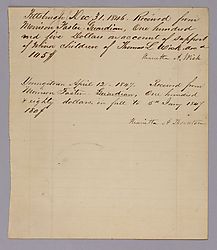 Pittsburgh Dec. 31. 1846. Received from
Warren Foster Guardian, One hundred
and five Dollars on account of support
of minor children of Thomas L. Wick dec'd
105$
Henrietta A. Wick
Youngstown April 12 - 1847. Received from
Warren Foster Guardian, One hundred
& eighty dollars in full to 5th Jany 1847
180$
Henrietta A Thornton